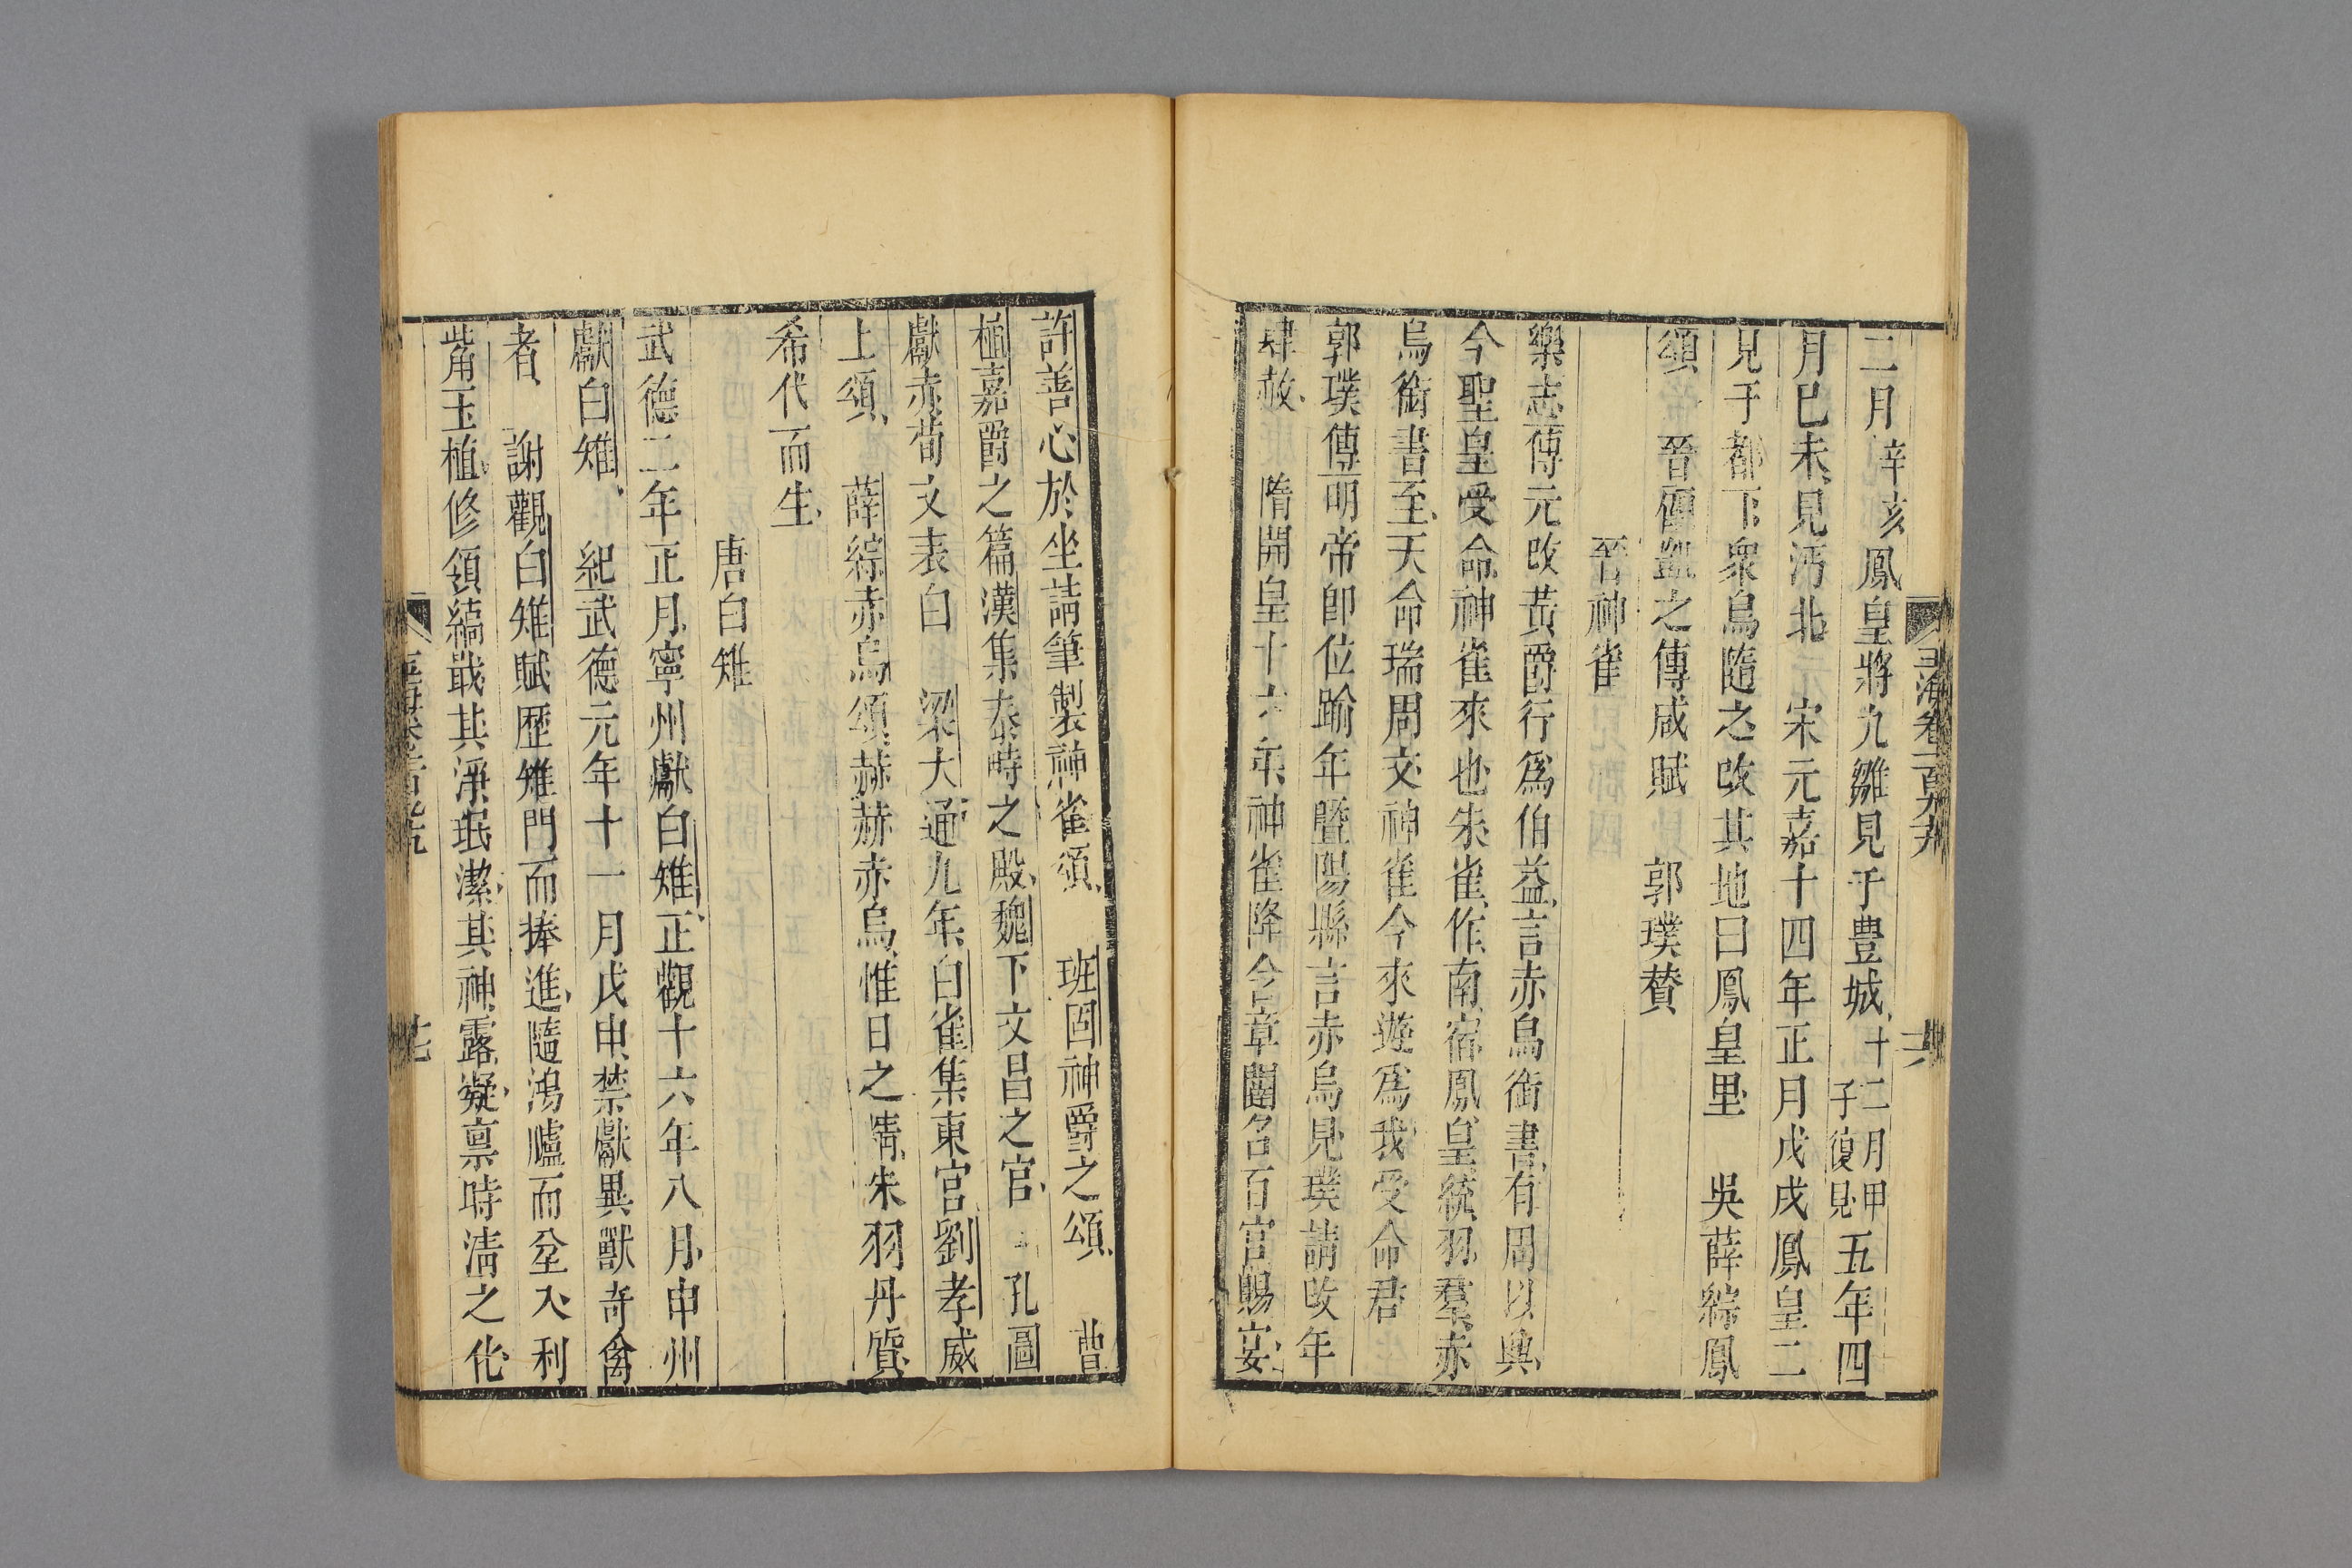 玉海卷一百九十九
十六
二月辛亥鳳皇將九雛見于豊城十二月甲子復見五年四
月巳未見沔北　宋元嘉十四年正月戊戌鳳皇二
見于都下衆鳥隨之改其地曰鳳皇里　吳薛綜鳳
頌　晉顧凱之傅咸賦　郭璞賛
晉神雀
樂志傅元改黃爵行爲伯益言赤烏銜書有周以興
今聖皇受命神雀來也朱雀作南宿鳳皇統羽羣赤
烏銜書至天命瑞周文神雀今來遊爲我受命君
郭璞傳明帝卽位踰年曁陽縣言赤烏見璞請改年
肆赦　隋開皇十六年神雀降含章闥名百官賜宴
許善心於坐請筆製神雀頌　班固神爵之頌　曹
植嘉爵之篇漢集泰畤之殿魏下文昌之宮　孔圖
獻赤荀文表白　梁大通九年白雀集東宮劉孝威
上頌　薛綜赤烏頌赫赫赤烏惟日之精朱羽丹質
希代而生
唐白雉
武德二年正月寧州獻白雉正觀十六年八月申州
獻白雉　紀武德元年十一月戊申禁獻異獸奇禽
者　謝觀白雉賦歷雉門而捧進隨鴻臚而坌入利
觜角玉植修領縞戢其淨珉潔其神露凝禀時淸之化